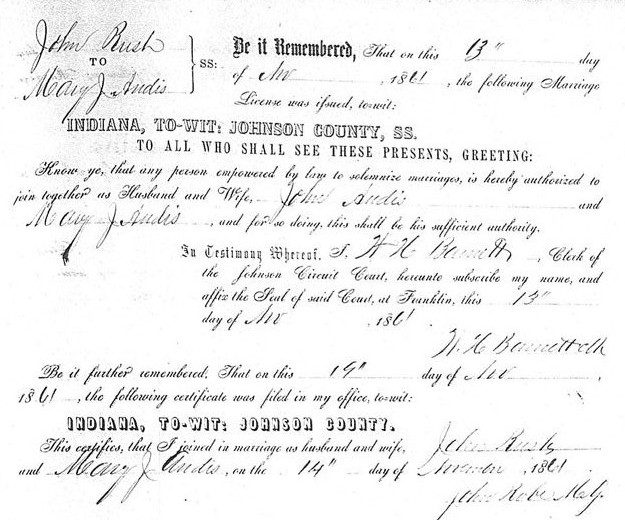 John Rush
TO
Mary J Andis
SS:
Be it Remembered, That on this 13" day
of Nov , 1861 , the following Marriage
License was issued, to-wit:
INDIANA, TO-WIT: JOHNSON COUNTY, SS.
TO ALL WHO SHALL SEE THESE PRESENTS, GREETING:
Know ye, that any person empowered by law to solemnize marriages, is hereby authorized to
join together as Husband and Wife, John Andis and
Mary J Andis , and for so doing, this shall be his sufficient authority.
In Testimony Whereof, I, W H Bennett , Clerk of
the Johnson Circuit Court, hereunto subscribe my name, and
affix the Seal of said Court, at Franklin, this 13"
day of Nov , 1861
W. H Bennett Clk
Be it further remembered, That on this 19" day of Nov
1861 , the following certificate was filed in my office, to-wit:
INDIANA, TO-WIT: JOHNSON COUNTY.
This certifies, that I joined in marriage as husband and wife, John Rush
and Mary J Andis , on the 14" day of , 1861
John